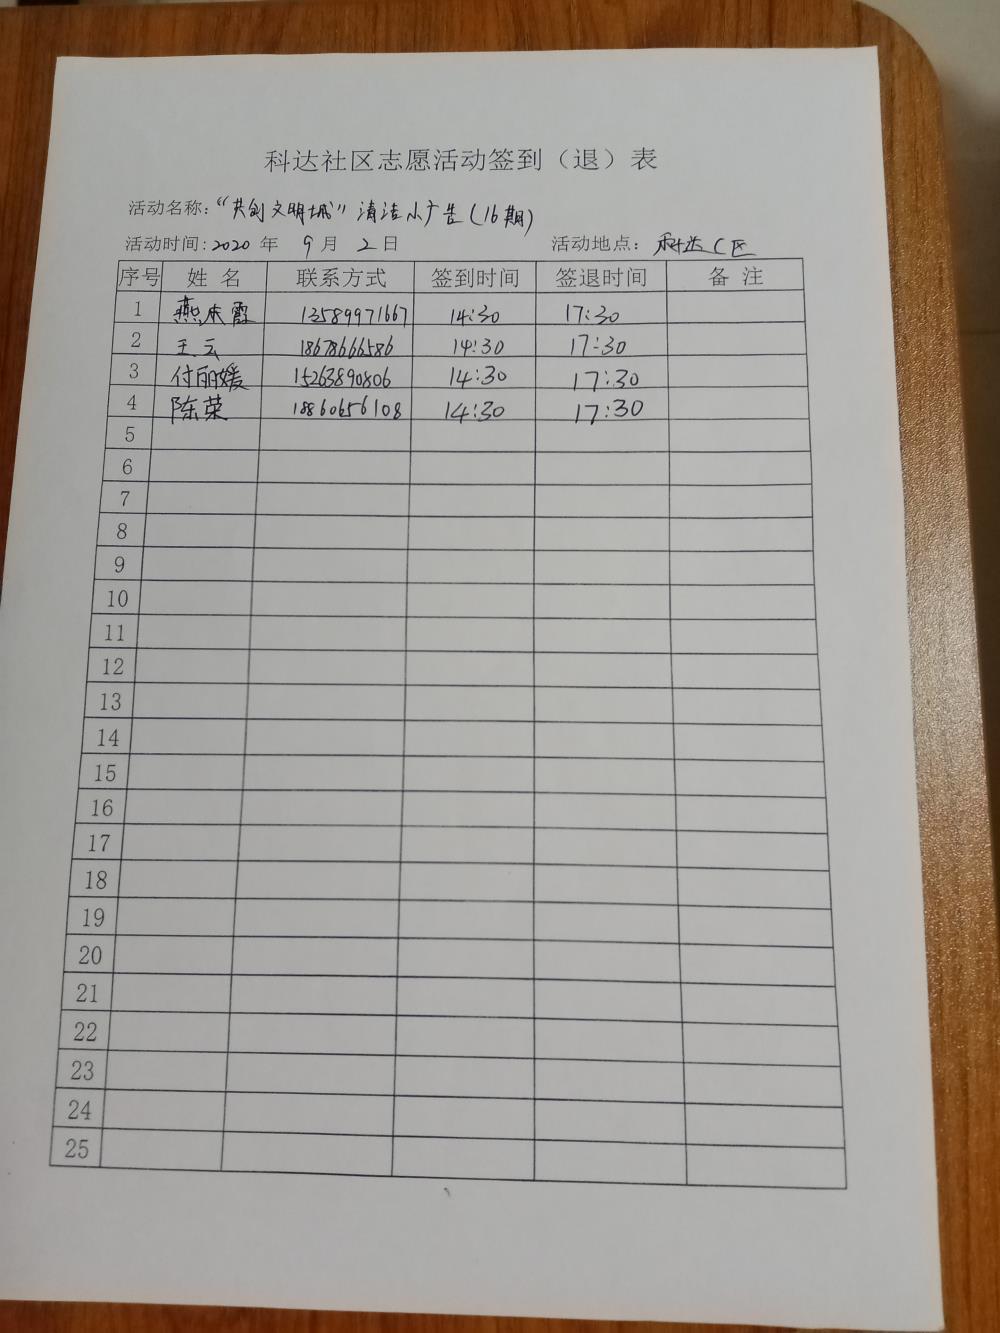 科达社区志愿活动签到（退）表
活动名称：“共创文明城”清洁小广告（16期）
活动时间：2020 年 9 月 2 日 活动地点：科达C区
序号 姓 名 联系方式 签到时间 签退时间 备 注
1 燕庆霞 13589971667 14:30 17:30
2 王云 18678666586 14:30 17:30
3 付丽媛 15263890806 14:30 17:30
4 陈荣 18860656108 14:30 17:30
5
6
7
8
9
10
11
12
13
14
15
16
17
18
19
20
21
22
23
24
25